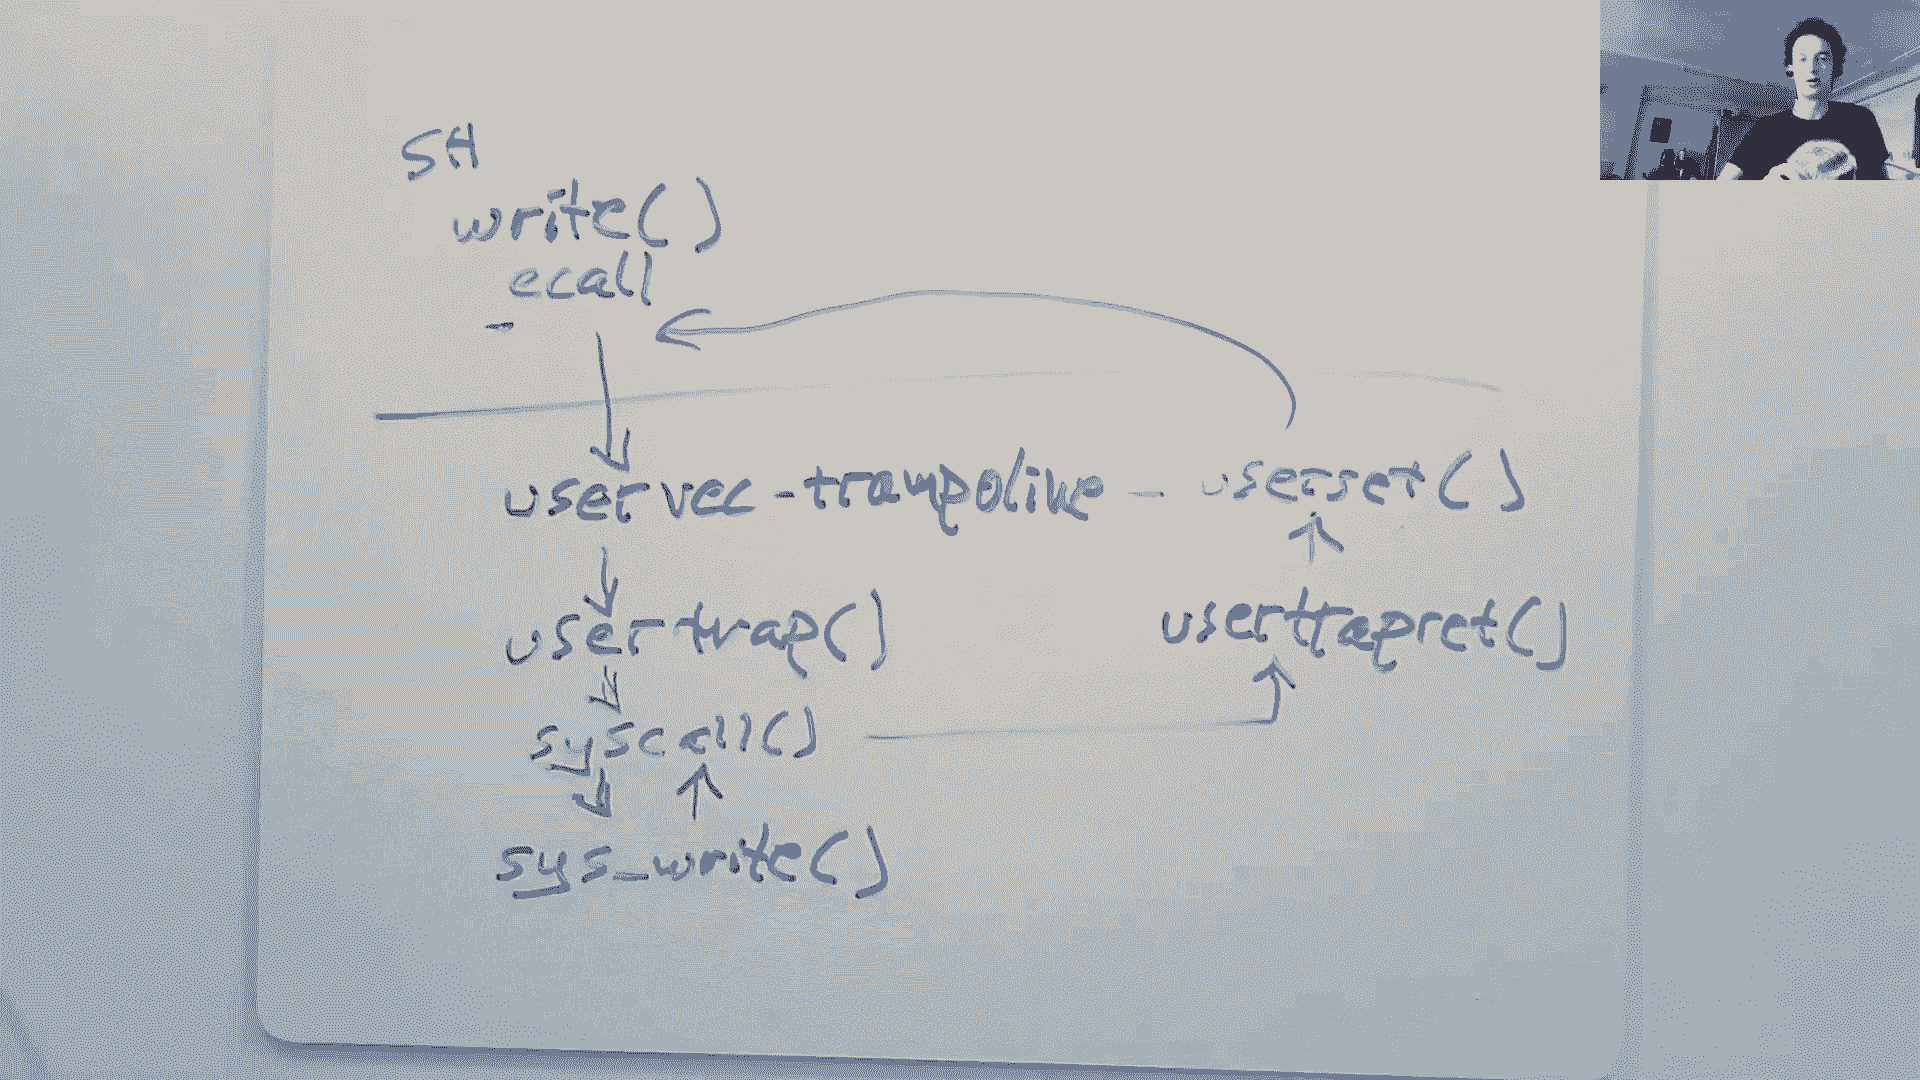 SH
write()
ecall
uservec - trampoline - userset()
usertrap()
usertrapret()
syscall()
sys_write()